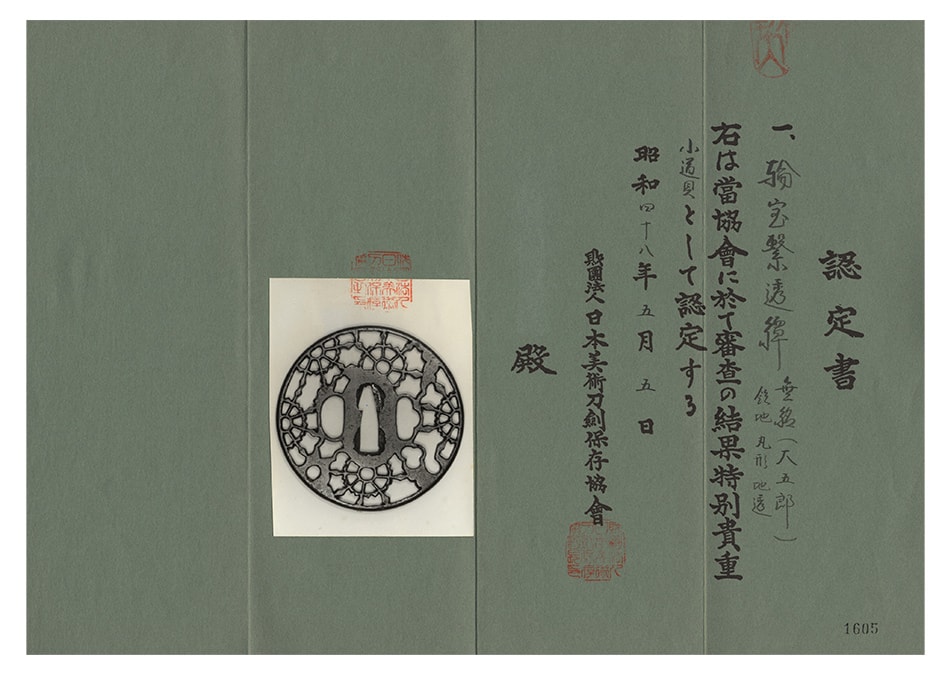 認定書
一、輪宝繋透鐔 無銘(人五郎)
鉄地 丸形 地透
右は當協會に於て審査の結果特別貴重
小道具として認定する
昭和四十八年五月五日
財團法人日本美術刀劍保存協會
殿
1605